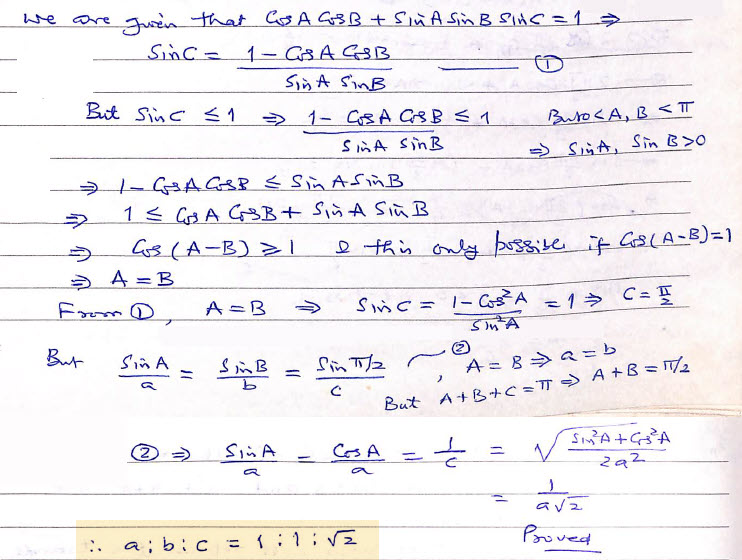 We are given that Cos A Cos B + Sin A Sin B Sin C = 1 ⇒
Sin C = (1 - Cos A Cos B) / (Sin A Sin B) ——— ①
But Sin C ≤ 1 ⇒ (1 - Cos A Cos B) / (Sin A Sin B) ≤ 1 But 0 < A, B < π
⇒ Sin A, Sin B > 0
⇒ 1 - Cos A Cos B ≤ Sin A Sin B
⇒ 1 ≤ Cos A Cos B + Sin A Sin B
⇒ Cos (A-B) ≥ 1 & this only possible if Cos (A-B) = 1
⇒ A = B
From ①, A = B ⇒ Sin C = (1 - Cos²A) / (Sin²A) = 1 ⇒ C = π/2
But Sin A / a = Sin B / b = Sin π/2 / c — ②, A = B ⇒ a = b
But A + B + C = π ⇒ A + B = π/2
② ⇒ Sin A / a = Cos A / a = 1 / c = √((Sin²A + Cos²A) / 2a²)
= 1 / (a√2)
∴ a : b : c = 1 : 1 : √2 Proved